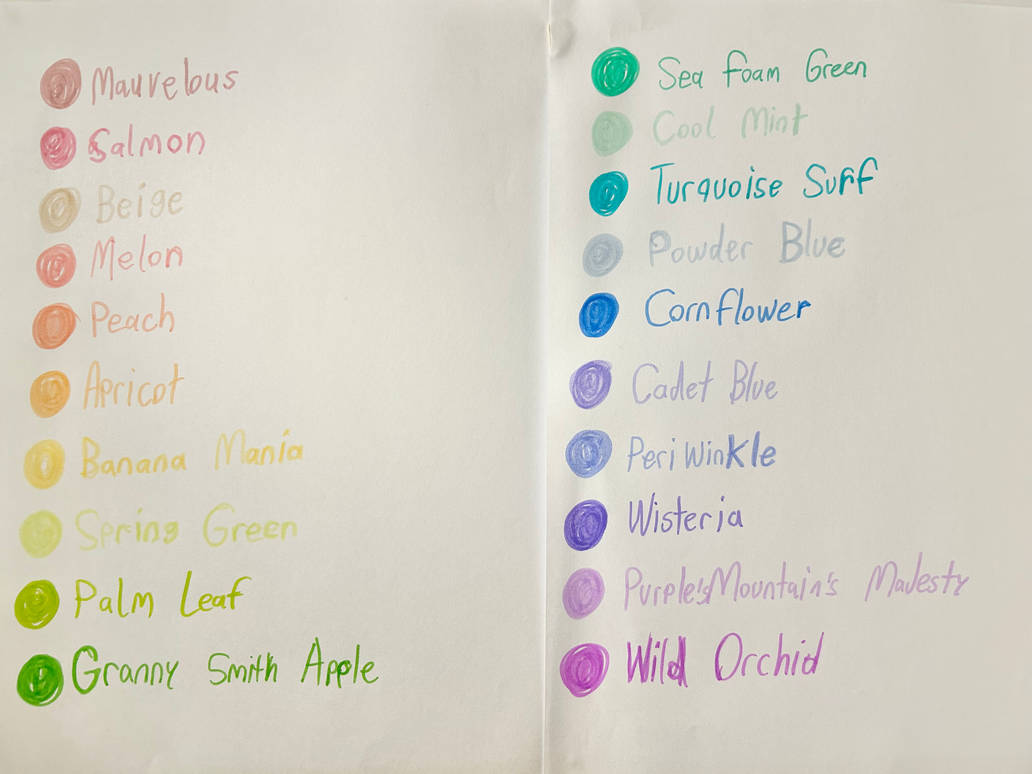 Mauvelous
Salmon
Beige
Melon
Peach
Apricot
Banana Mania
Spring Green
Palm Leaf
Granny Smith Apple
Sea Foam Green
Cool Mint
Turquoise Surf
Powder Blue
Cornflower
Cadet Blue
Periwinkle
Wisteria
Purple's Mountain's Majesty
Wild Orchid